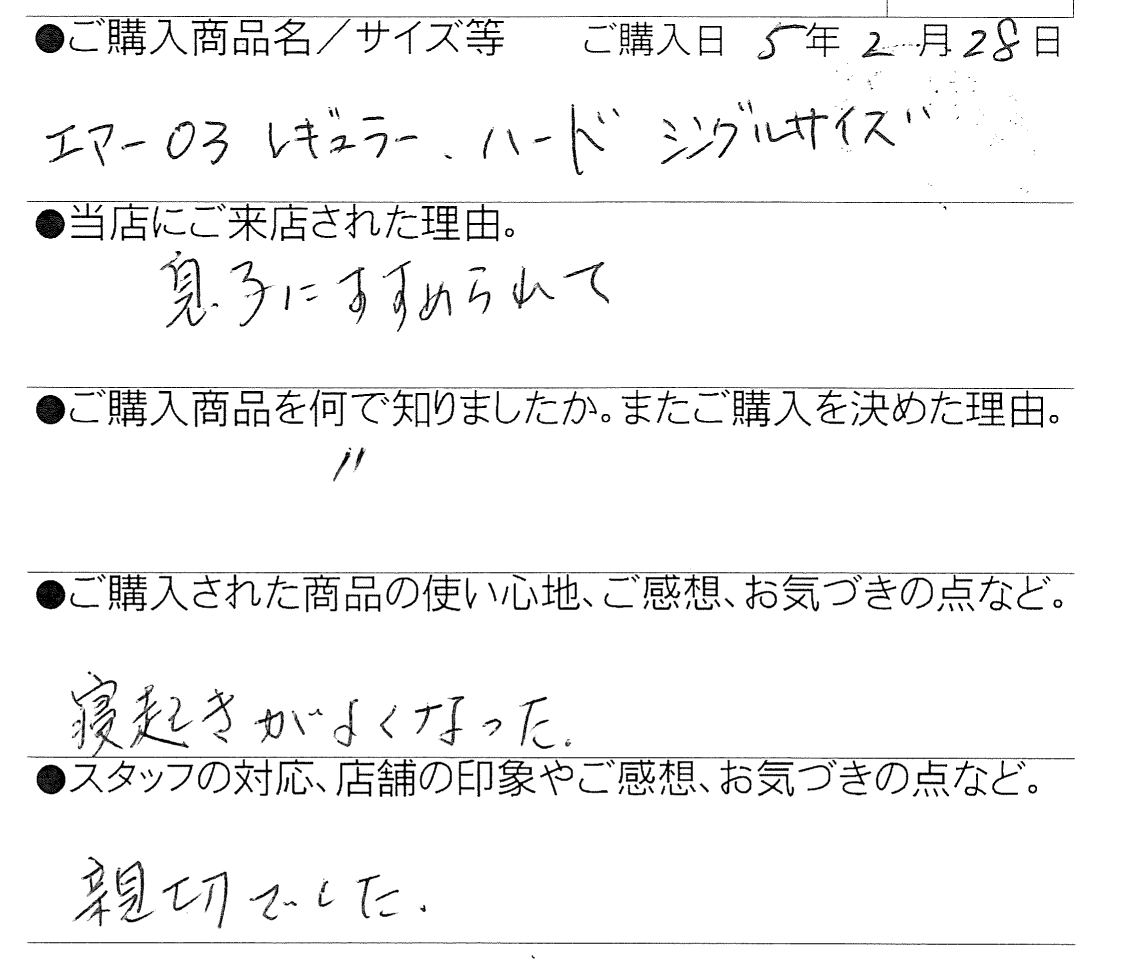 ●ご購入商品名／サイズ等　ご購入日 5年 2月 28日
エアー03 レギュラー、ハード シングルサイズ
●当店にご来店された理由。
息子にすすめられて
●ご購入商品を何で知りましたか。またご購入を決めた理由。
〃
●ご購入された商品の使い心地、ご感想、お気づきの点など。
寝起きがよくなった.
●スタッフの対応、店舗の印象やご感想、お気づきの点など。
親切でした.